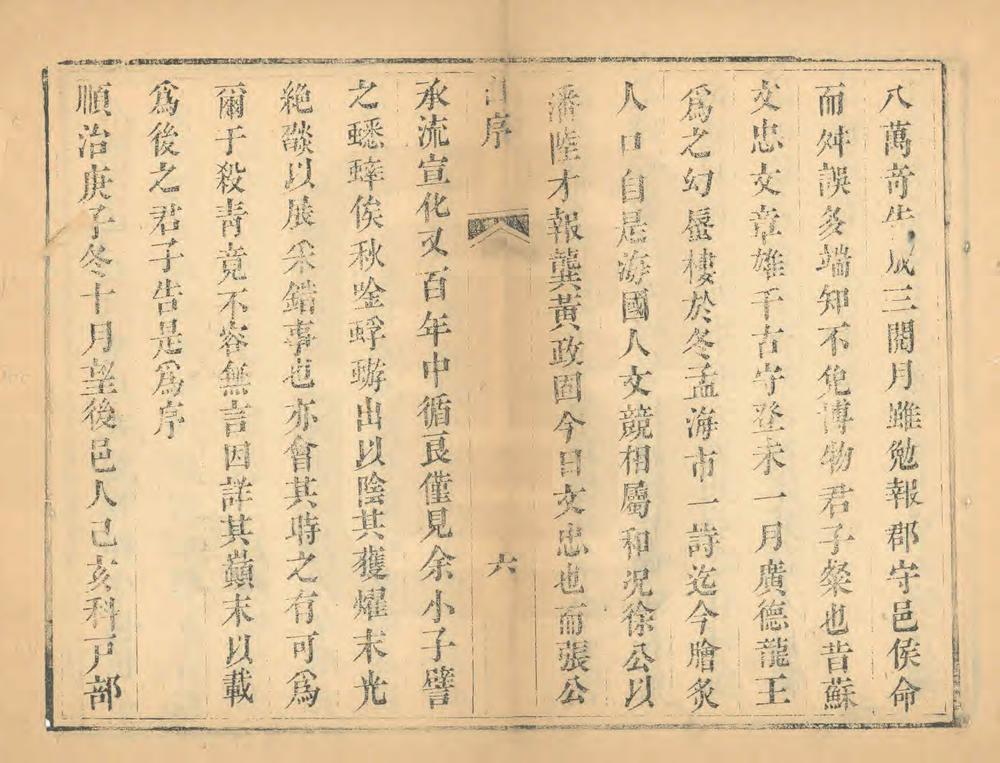 八萬奇告成三閱月雖勉報郡守邑侯命
而舛誤多端知不免博物君子粲也昔蘇
文忠文章雄千古守登未一月廣德龍王
爲之幻蜃樓於冬孟海市一詩迄今膾炙
人口自是海國人文競相屬和況徐公以
潘陸才報龔黃政固今日文忠也而張公
序
六
承流宣化又百年中循良僅見余小子譬
之蟋蟀俟秋唫蜉蝣出以陰其獲燿末光
絶燄以展采錯事也亦會其時之有可爲
爾于殺青竟不容無言因詳其巔末以載
爲後之君子告是爲序
順治庚子冬十月望後邑人己亥科戸部